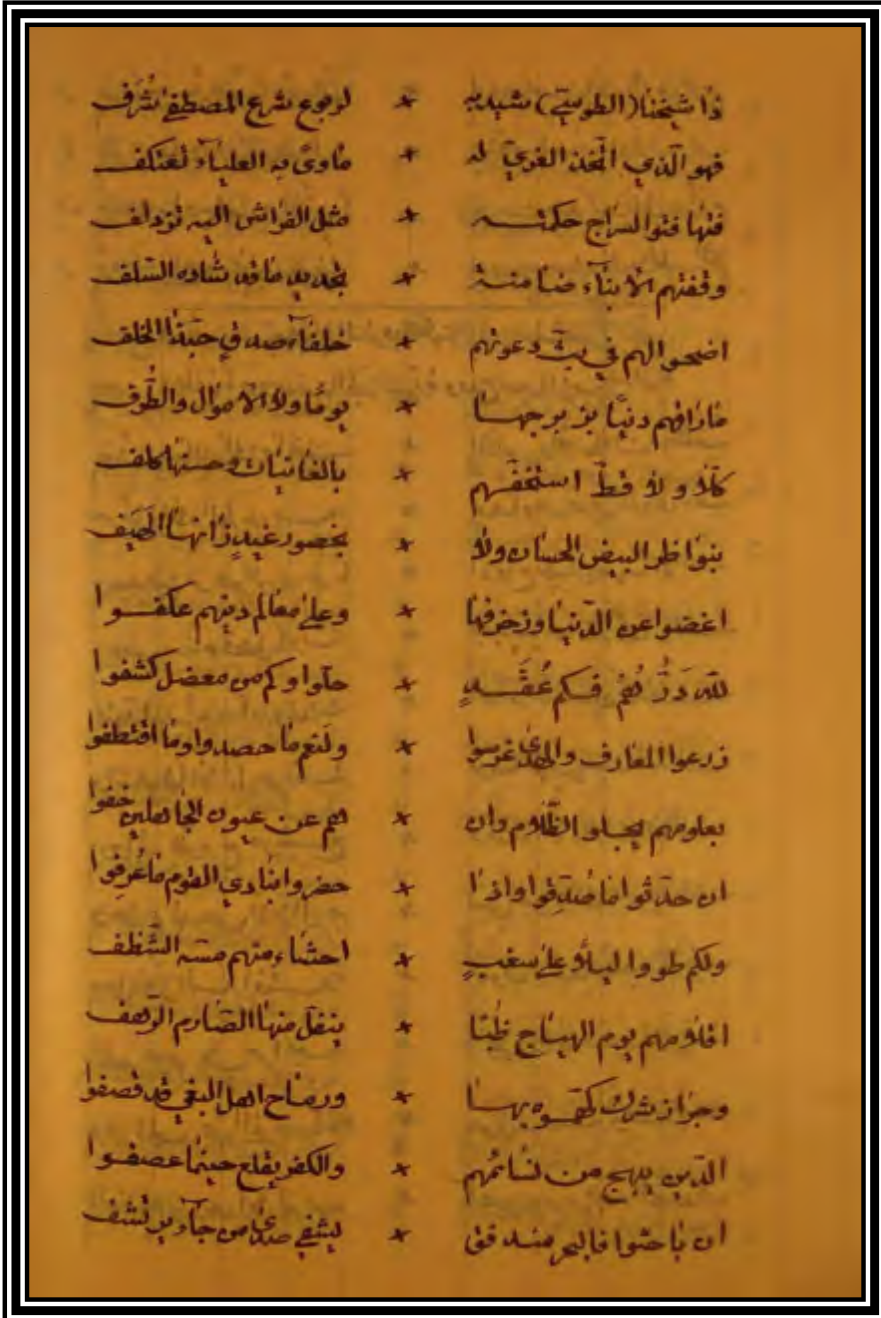 ذا شيخنا (الطوسيّ) شيد به * لربوع شرع المصطفى شرف
فهو الّذي اتّخذ الغريّ له * مأوى به العلياء تعتكف
فتهافتوا لسراج حكمته * مثل الفراش اليه تزدلف
وقفتهم الأبناء ضامنة * تجديد ما قد شاده السّلف
اضحوا لهم في بثّ دعوتهم * خلفاء صدق حبّذا الخلف
ما راقهم دنيا بزبرجها * يومًا ولا الأموال والطُّرف
كلّا ولا قطّ استخفّهم * بالغانيات وحسنها كلف
بنواظر البيض الحسان ولا * بخصور غيدٍ زانها الهَيَف
اغضوا عن الدّنيا وزخرفها * وعلى معالم دينهم عكفوا
للّه دَرُّ هُمُ فكم عُقَدٍ * حلّوا وكم من معضل كشفوا
زرعوا المعارف والهدى غرسوا * ولَنعم ما حصدوا وما اقتطفوا
بعلومهم يجلو الظّلام وان * هم عن عيون الجاهلين خفوا
ان حدّثوا ما صُدِّقوا واذا * حضروا بنادي القوم ما عُرِفوا
ولكم طووا ليلًا على سغبٍ * احشاء منهم مسّه الشّظف
اقلامهم يوم الهياج ظبًا * ينفلّ منها الصّارم الرّهف
وجراز شرك بها * ورماح اهل البغي قد قصفوا
الدّين يبهج من نسائمهم * والكفر يقلع حينما عصفوا
ان باحثوا فالبحر منه فق * يشفى صدى من جاء يرتشف